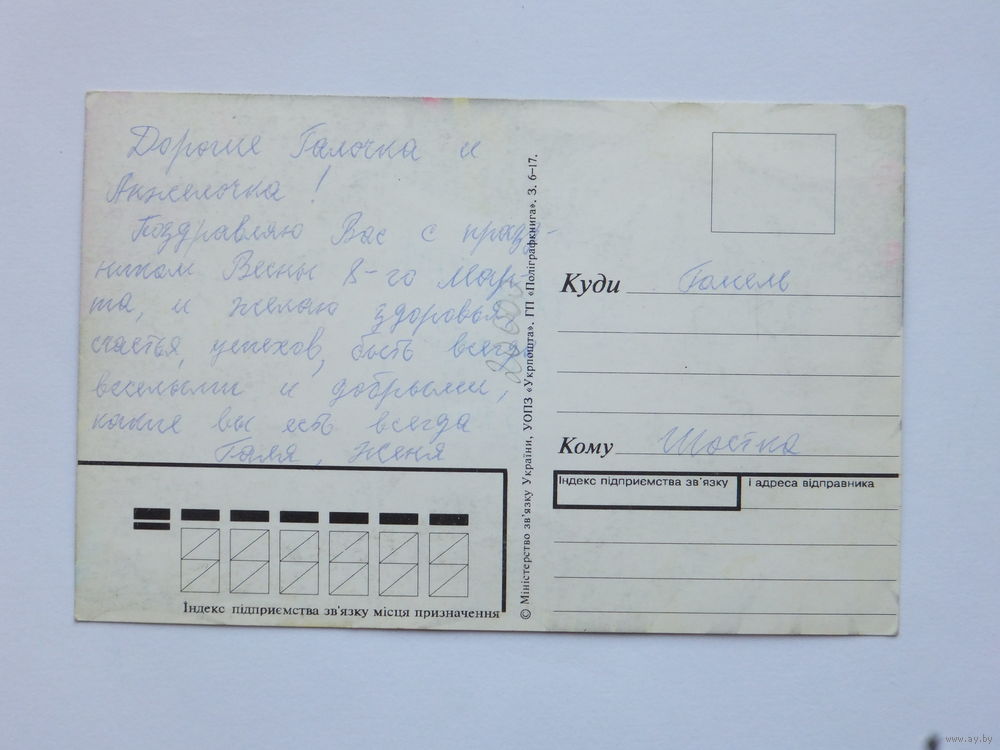 Дорогие Галочка и
Анжелочка!
Поздравляю Вас с празд-
ником Весны 8-го Мар-
та, и желаю здоровья
счастья, успехов, быть всегда
веселыми и добрыми,
какие вы есть всегда
Галя, Женя
Індекс підприємства зв'язку місця призначення
© Міністерство зв'язку України, УОПЗ «Укрпошта». ГП «Поліграфкнига». З. 6–17.
Куди Гомель
Кому Шостка
Індекс підприємства зв'язку і адреса відправника
www.ay.by